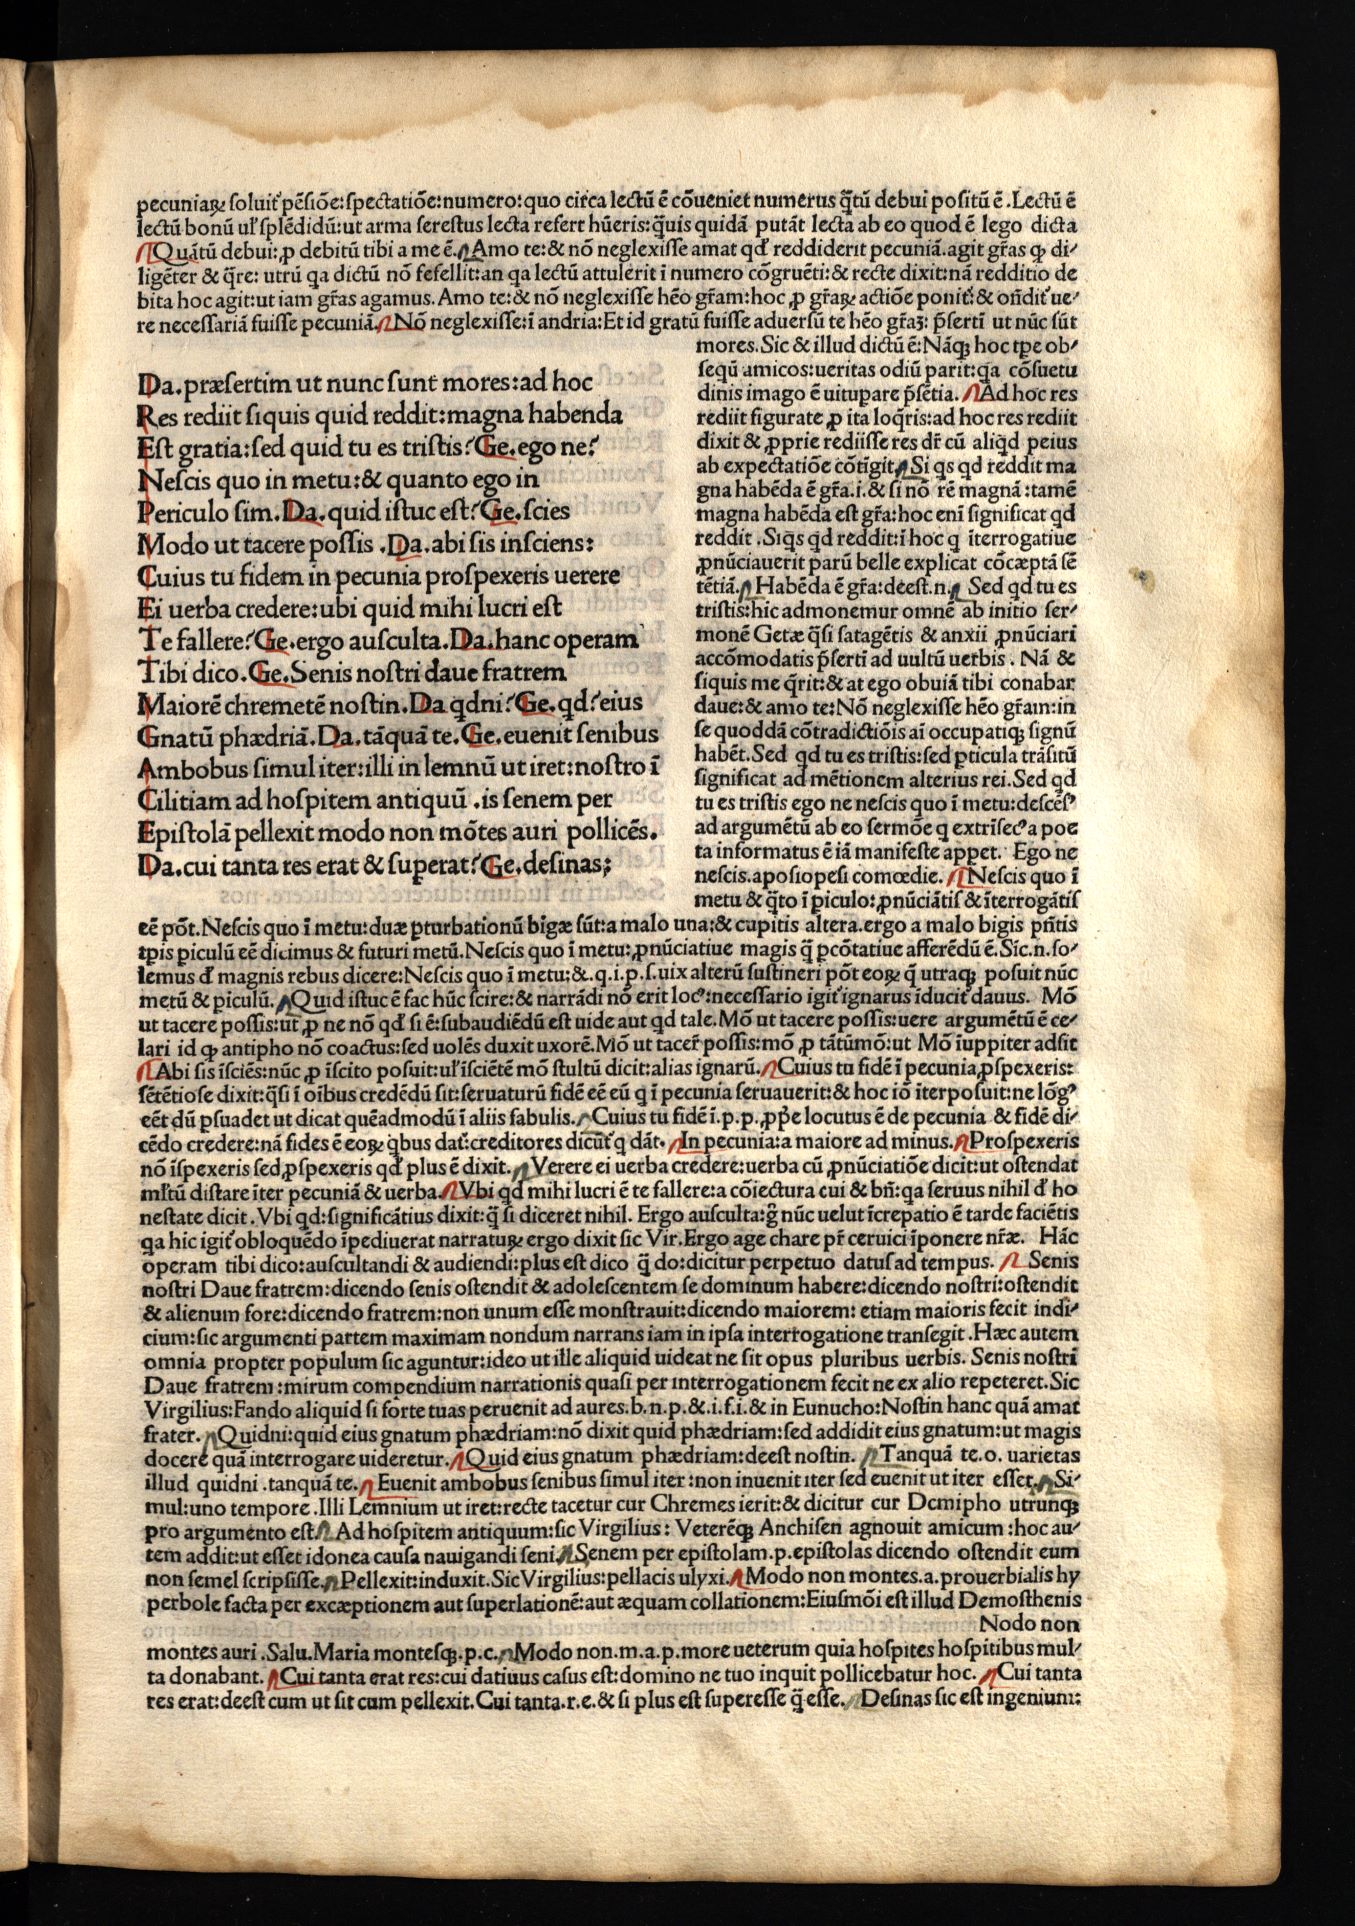 pecuniaꝝ soluit᷑ pēsiōe:spectatiōe:numero:quo circa lectū ē cōueniet numerus q̄tū debui positū ē.Lectū ē
lectū bonū ul̓ splēdidū:ut arma serestus lecta refert hūeris:q̄uis quidā putāt lecta ab eo quod ē lego dicta
Quātū debui:ꝓ debitū tibi a me ē.Amo te:& nō neglexisse amat qđ reddiderit pecuniā.agit gr̄as ꝙ di-
ligēter & q̄re: utrū qa dictū nō fefellit:an qa lectū attulerit ī numero cōgruēti:& recte dixit:nā redditio de
bita hoc agit:ut iam gr̄as agamus.Amo te:& nō neglexisse hēo gr̄am:hoc ꝓ gr̄aꝝ actiōe ponit᷑:& on̄dit᷑ ue-
re necessariā fuisse pecuniā.Nō neglexisse:ī andria:Et id gratū fuisse aduersū te hēo gr̄aꝫ: p̄sertī ut nūc sūt
mores.Sic & illud dictū ē:Nāqꝫ hoc tp̄e ob-
sequū amicos:ueritas odiū parit:qa cōsuetu
dinis imago ē uituꝑare p̄sētia.Ad hoc res
rediit figurate ꝓ ita loq̄ris:ad hoc res rediit
dixit & ꝓprie rediisse res dr̄ cū aliq̄d peius
ab expectatiōe cōtīgit.Si qs qd reddit ma
gna habēda ē gr̄a.i.& si nō rē magnā:tamē
magna habēda est gr̄a:hoc enī significat qd
reddit.Siq̄s qd reddit:ī hoc q īterrogatiue
ꝓnūciauerit parū belle explicat cōcæptā sē
tētiā.Habēda ē gr̄a:deest.n.Sed qd tu es
tristis:hic admonemur omnē ab initio ser-
monē Getæ q̄si satagētis & anxii ꝓnūciari
accōmodatis p̄sertī ad uultū uerbis. Nā &
siquis me q̄rit:& at ego obuiā tibi conabar
daue:& amo te:Nō neglexisse hēo gr̄am:in
se quoddā cōtradictiōis aī occupatiqꝫ signū
habēt.Sed qd tu es tristis:sed ꝑticula trāsitū
significat ad mētionem alterius rei.Sed qd
tu es tristis ego ne nescis quo ī metu:descēs᾽
ad argumētū ab eo sermōe q extrīsec᾽ a poe
ta informatus ē iā manifeste apꝑet. Ego ne
nescis.aposiopesi comœdie.Nescis quo ī
metu & q̄to ī ꝑiculo:ꝓnūciātis & īterrogātis
Da.præsertim ut nunc sunt mores:ad hoc
Res rediit siquis quid reddit:magna habenda
Est gratia:sed quid tu es tristis?Ge.ego ne?
Nescis quo in metu:& quanto ego in
Periculo sim.Da.quid istuc est?Ge.scies
Modo ut tacere possis.Da.abi sis insciens:
Cuius tu fidem in pecunia prospexeris uerere
Ei uerba credere:ubi quid mihi lucri est
Te fallere?Ge.ergo ausculta.Da.hanc operam
Tibi dico.Ge.Senis nostri daue fratrem
Maiorē chremetē nostin.Da qdni?Ge.qd?eius
Gnatū phædriā.Da.tāquā te.Ge.euenit senibus
Ambobus simul iter:illi in lemnū ut iret:nostro ī
Cilitiam ad hospitem antiquū.is senem per
Epistolā pellexit modo non mōtes auri pollicēs.
Da.cui tanta res erat & superat?Ge.desinas;
eē pōt.Nescis quo ī metu:duæ ꝑturbationū bigæ sūt:a malo una:& cupitis altera.ergo a malo bigis pn̄tis
tꝑis ꝑiculū eē dicimus & futuri metū.Nescis quo ī metu:ꝓnūciatiue magis q̄ ꝑcōtatiue afferēdū ē.Sic.n.so-
lemus đ magnis rebus dicere:Nescis quo ī metu:&.q.i.p.s.uix alterū sustineri pōt eoꝝ q̄ utraqꝫ posuit nūc
metū & ꝑiculū.Quid istuc ē fac hūc scire:& narrādi nō erit loc᾽:necessario igit᷑ ignarus īducit᷑ dauus. Mō
ut tacere possis:ut ꝓ ne nō qđ si ē:subaudiēdū est uide aut qd tale.Mō ut tacere possis:uere argumētū ē ce-
lari id ꝙ antipho nō coactus:sed uolēs duxit uxorē.Mō ut tacer̄ possis:mō ꝓ tātūmō:ut Mō iuppiter adsit
Abi sis īsciēs:nūc ꝓ īscito posuit:ul̓ īsciētē mō stultū dicit:alias ignarū.Cuius tu fidē ī pecunia ꝓspexeris:
sētētiose dixit:q̄si ī oībus credēdū sit:seruaturū fidē eē eū q ī pecunia seruauerit:& hoc iō īterposuit:ne lōg᾽
eēt dū ꝑsuadet ut dicat quēadmodū ī aliis fabulis.Cuius tu fidē ī.p.p.ꝓp̄e locutus ē de pecunia & fidē di-
cēdo credere:nā fides ē eoꝝ q̄bus dat᷑:creditores dicūt᷑ q dāt.In pecunia:a maiore ad minus.Prospexeris
nō īspexeris sed ꝓspexeris qđ plus ē dixit.Verere ei uerba credere:uerba cū ꝓnūciatiōe dicit:ut ostendat
ml̓tū distare īter pecuniā & uerba.Vbi qd mihi lucri ē te fallere:a cōiectura cui & bn̄:qa seruus nihil đ ho
nestate dicit.Vbi qd:significātius dixit:q̄ si diceret nihil. Ergo ausculta:g̊ nūc uelut īcrepatio ē tarde faciētis
qa hic igit᷑ obloquēdo īpediuerat narratuꝝ ergo dixit sic Vir.Ergo age chare pr̄ ceruici īponere nr̄æ. Hāc
operam tibi dico:auscultandi & audiendi:plus est dico q̄ do:dicitur perpetuo datus ad tempus. Senis
nostri Daue fratrem:dicendo senis ostendit & adolescentem se dominum habere:dicendo nostri:ostendit
& alienum fore:dicendo fratrem:non unum esse monstrauit:dicendo maiorem: etiam maioris fecit indi-
cium:sic argumenti partem maximam nondum narrans iam in ipsa interrogatione transegit.Hæc autem
omnia propter populum sic aguntur:ideo ut ille aliquid uideat ne sit opus pluribus uerbis. Senis nostri
Daue fratrem:mirum compendium narrationis quasi per interrogationem fecit ne ex alio repeteret.Sic
Virgilius:Fando aliquid si forte tuas peruenit ad aures.b.n.p.&.i.f.i.& in Eunucho:Nostin hanc quā amat
frater.Quidni:quid eius gnatum phædriam:nō dixit quid phædriam:sed addidit eius gnatum:ut magis
docere quā interrogare uideretur.Quid eius gnatum phædriam:deest nostin. Tanquā te.o. uarietas
illud quidni.tanquā te.Euenit ambobus senibus simul iter:non inuenit iter sed euenit ut iter esset.Si-
mul:uno tempore.Illi Lemnium ut iret:recte tacetur cur Chremes ierit:& dicitur cur Demipho utrunqꝫ
pro argumento est.Ad hospitem antiquum:sic Virgilius: Veterēqꝫ Anchisen agnouit amicum:hoc au-
tem addit:ut esset idonea causa nauigandi seni.Senem per epistolam.p.epistolas dicendo ostendit eum
non semel scripsisse.Pellexit:induxit.Sic Virgilius:pellacis ulyxi.Modo non montes.a.prouerbialis hy
perbole facta per excæptionem aut superlationē:aut æquam collationem:Eiusmōi est illud Demosthenis
Nodo non
montes auri.Salu.Maria montesqꝫ.p.c.Modo non.m.a.p.more ueterum quia hospites hospitibus mul-
ta donabant.Cui tanta erat res:cui datiuus casus est:domino ne tuo inquit pollicebatur hoc.Cui tanta
res erat:deest cum ut sit cum pellexit.Cui tanta.r.e.& si plus est superesse q̄ esse.Desinas sic est ingenium: